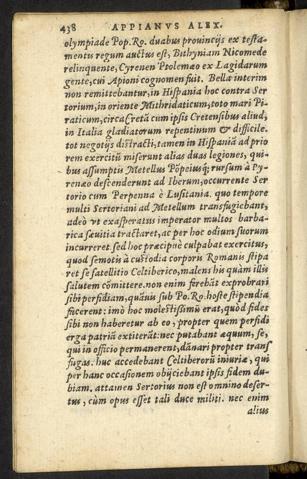 438 APPIANVS ALEX.
olympiade Pop. Ro. duabus prouincijs ex testa-
mentis regum auctus est, Bithyniam Nicomede
relinquente, Cyrenen Ptolemæo ex Lagidarum
gente, cui Apioni cognomen fuit. Bella interim
non remittebantur, in Hispania hoc contra Ser
torium, in oriente Mithridaticum, toto mari Pi-
raticum, circa Cretã cum ipsis Cretensibus aliud,
in Italia gladiatorum repentinum & difficile.
tot negotijs distracti, tamen in Hispaniã ad prio
rem exercitũ miserunt alias duas legiones, qui-
bus assumptis Metellus Põpeiusq; rursum à Py-
renæo descenderunt ad Iberum, occurrente Ser
torio cum Perpenna è Lusitania. quo tempore
multi Sertoriani ad Metellum transfugiebant,
adeò vt exasperatus imperator multos barba-
rica sæuitia tractaret, ac per hoc odium suorum
incurreret sed hoc præcipuè culpabat exercitus,
quod semotis à custodia corporis Romanis stipa
ret se satellitio Celtiberico, malens his quàm illis
salutem cõmittere. non enim ferebãt exprobrari
sibi perfidiam, quãuis sub Po. Ro. hoste stipendia
facerent: imò hoc molestissimũ erat, quòd fides
sibi non haberetur ab eo, propter quem perfidi
erga patriã extiterãt: nec putabant æquum, se,
qui in officio permanerent, dãnari propter trans
fugas. huc accedebant Celtiberorũ iniuriæ, qui
per hanc occasionem obijciebant ipsis fidem du-
biam. attamen Sertorius non est omnino deser-
tus, cùm opus esset tali duce militi. nec enim
alius